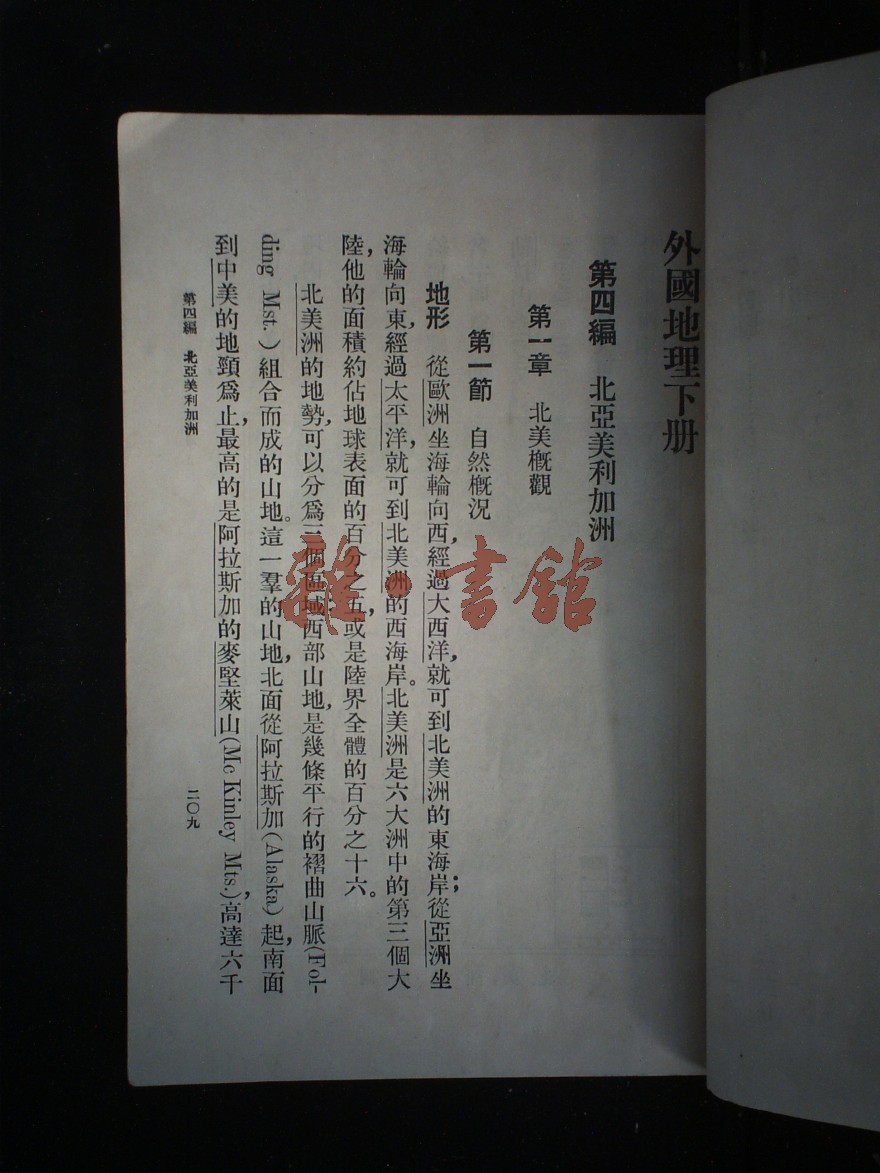 外國地理下册
第四編 北亞美利加洲
第一章 北美概觀
第一節 自然概况
地形 從歐洲坐海輪向西,經過大西洋,就可到北美洲的東海岸;從亞洲坐
海輪向東,經過太平洋,就可到北美洲的西海岸。北美洲是六大洲中的第三個大
陸,他的面積約佔地球表面的百分之五,或是陸界全體的百分之十六。
北美洲的地勢,可以分爲三個區域:西部山地,是幾條平行的褶曲山脈(Fol-
ding Mst.)組合而成的山地。這一羣的山地,北面從阿拉斯加(Alaska)起,南面
到中美的地頸爲止,最高的是阿拉斯加的麥堅萊山(Mc Kinley Mts.),高達六千
第四編 北亞美利加洲
二〇九
雜·書館